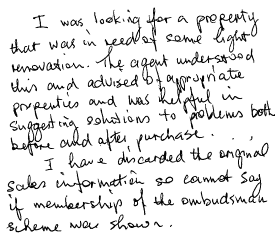 I was looking for a property
that was in need of some light
renovation. The agent understood
this and advised of appropriate
properties and was helpful in
suggesting solutions to problems both
before and after purchase...
I have discarded the original
sales information so cannot say
if membership of the ombudsman
scheme was shown.